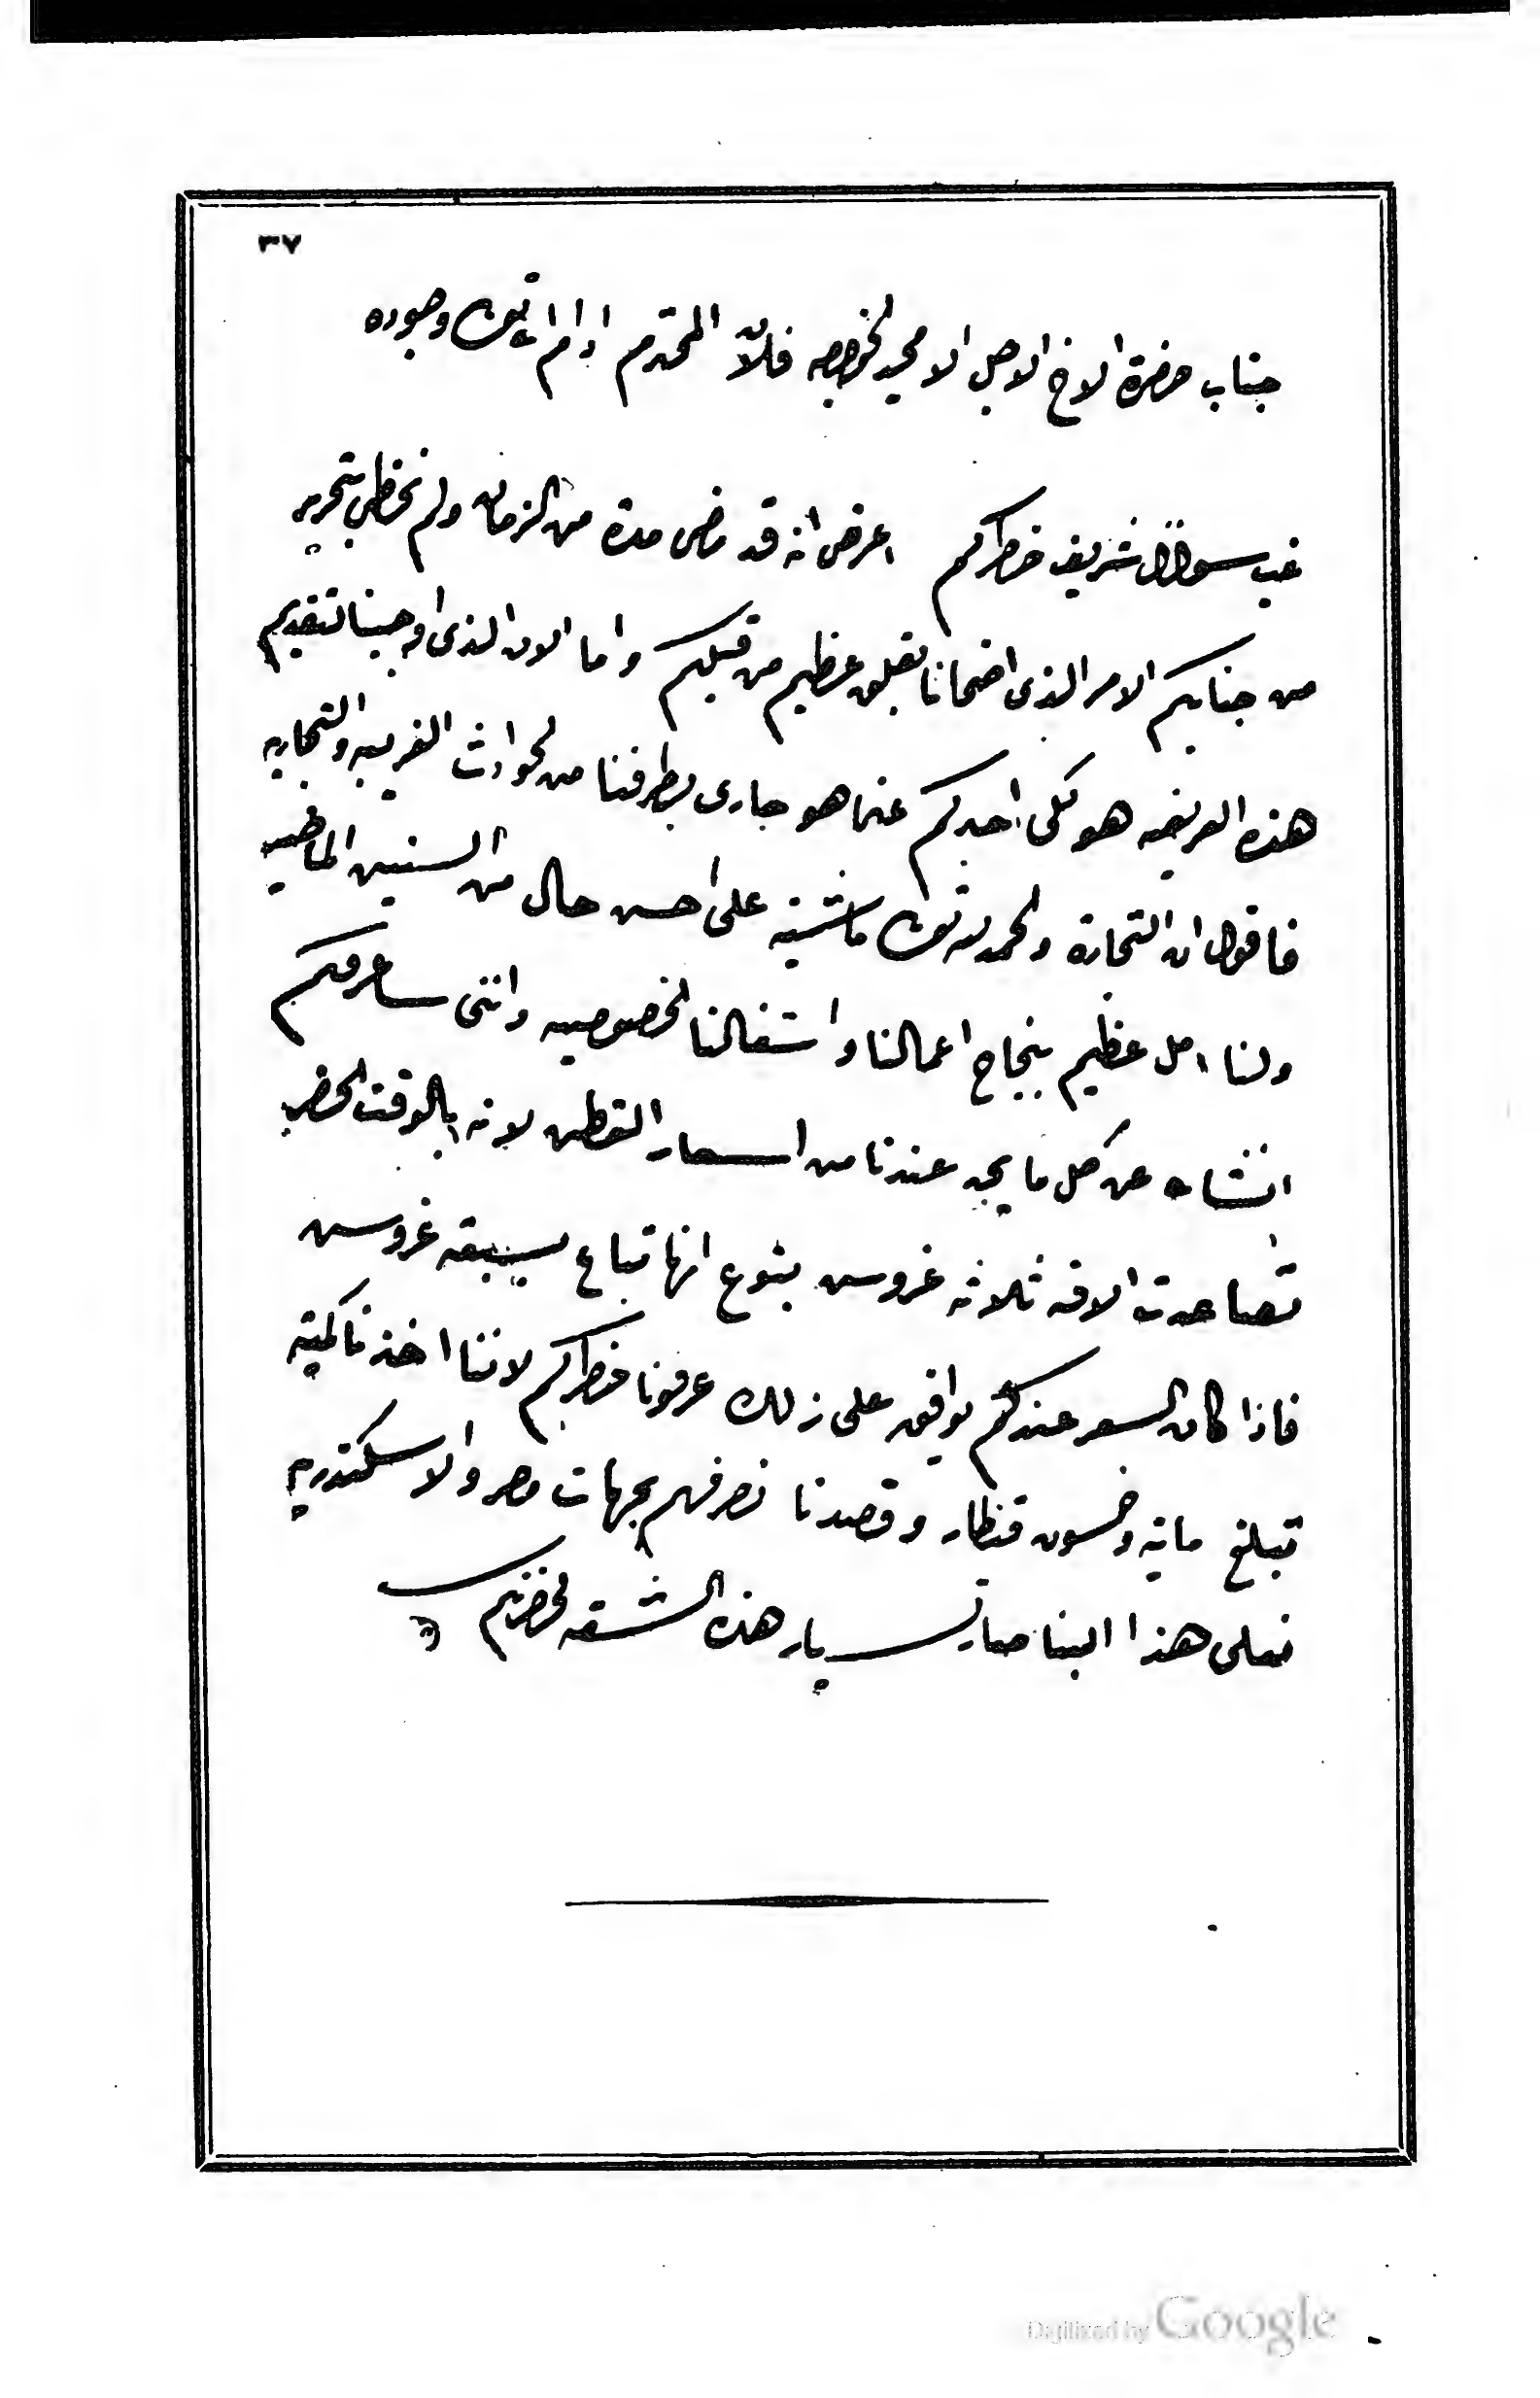 ٣٧
جناب حضرة الاخ الاجل الامجد الخواجه فلان المحترم ادام الله تعالى وجوده
غب سؤال شريف خاطركم اعرض انه قد مضى مدة من الزمان ولم نحظى بتحرير
من جنابكم الامر الذى اضحانا بقلق عظيم من قبلكم واما الان الذى اوجبنا لتقديم
هذه العريضه هو لكى اخبركم عما هو جارى بطرفنا من الحوادث الغريبه والتجاريه
فاقول ان التجارة والحمد لله تعالى ماشيه على احسن حال من السنين الماضيه
ولنا امل عظيم بنجاح اعمالنا واشغالنا الخصوصيه واننى ساعرفكم
انشاء عن كل ما يجد عندنا من اسعار القطن لانه بالوقت الحاضر
تصاعدت الاقه ثلاثه غروس بنوع انها تباع بسبعه غروس
فاذا كان السعر عندكم يوافق على ذلك عرفونا خاطركم لاننا اخذنا كميه
تبلغ مايه وخمسون قنطار وقصدنا نصرفهم بجهات مصر والاسكندريه
فعلى هذا البنا صار تسيار هذه الشقه لحضرتكم